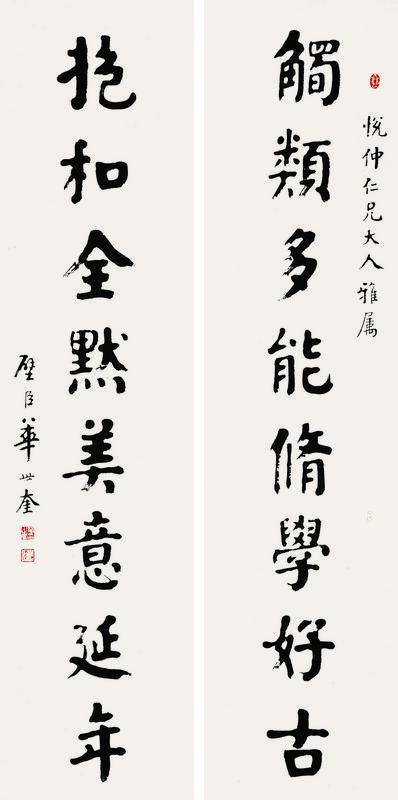 悦仲仁兄大人雅属
觸類多能脩學好古
抱和全默美意延年
璧臣華世奎